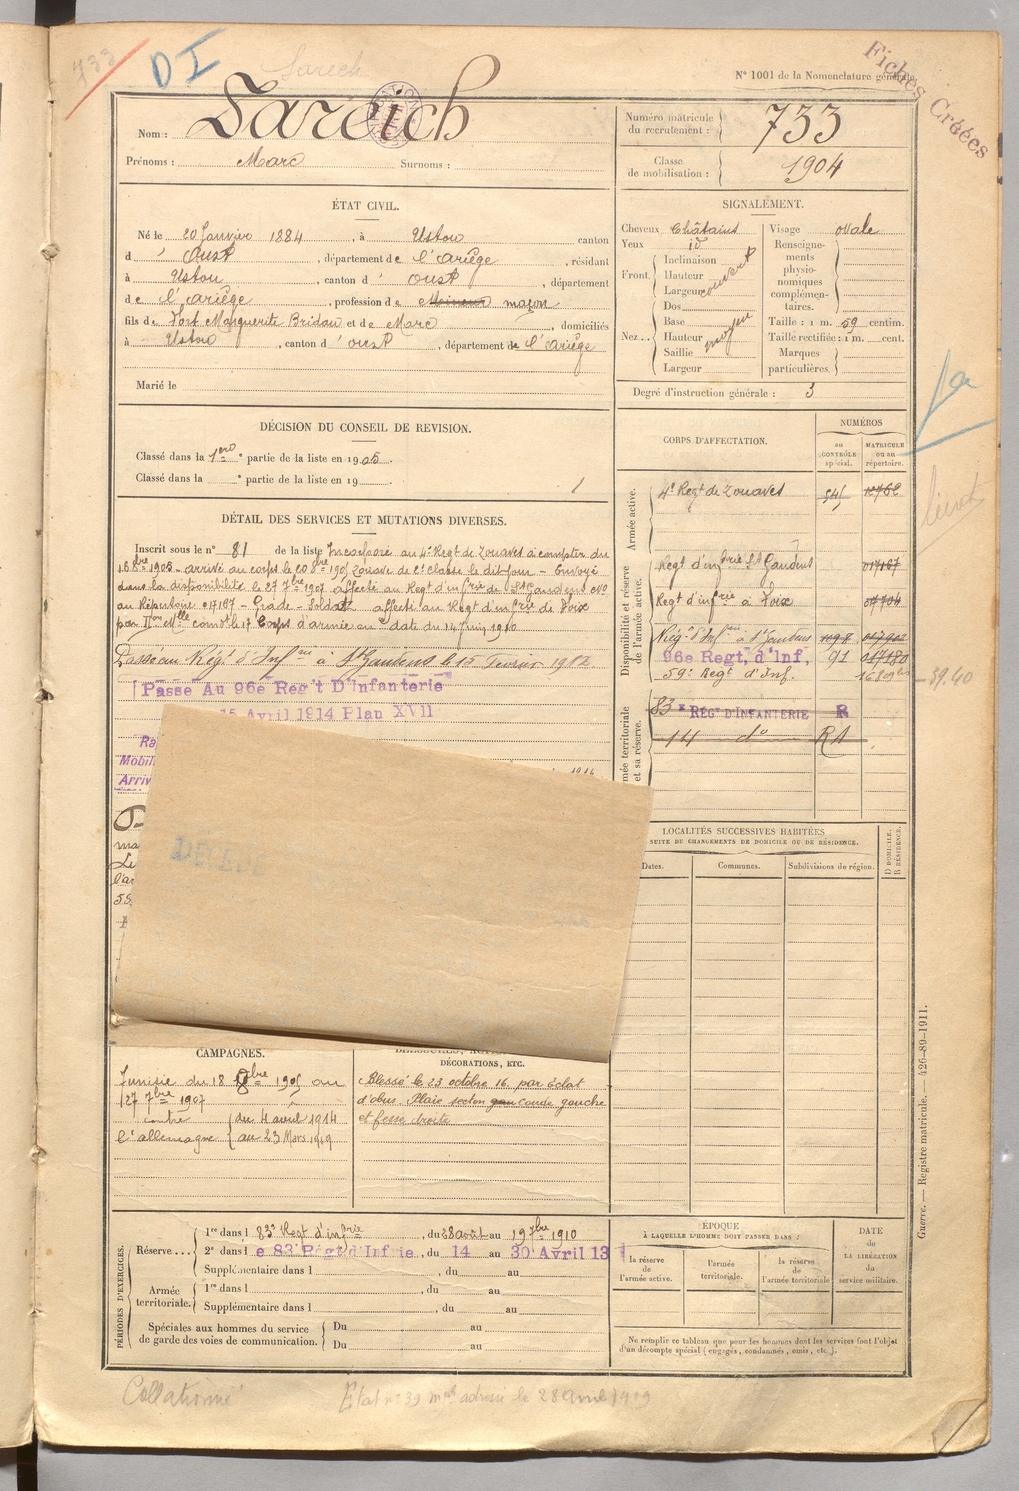 733
D I
Sareich
N° 1001 de la Nomenclature générale
Fiches Créées
Nom : Sareich
Prénoms : Marc Surnoms :
Numéro matricule du recrutement : 733
Classe de mobilisation : 1904
ÉTAT CIVIL.
Né le 20 Janvier 1884, à Ustou canton
d' Oust, département de l'Ariège, résidant
à Ustou, canton d' Oust, département
de l'Ariège, profession de maçon
fils de Fort Marguerite Bridau et de Marc, domiciliés
à Ustou, canton d' Oust, département de l'Ariège
Marié le
SIGNALEMENT.
Cheveux Châtains
Yeux id
Front. Inclinaison
Hauteur
Largeur couvert
Dos
Nez... Base
Hauteur moyen
Saillie
Largeur
Visage ovale
Renseignements physionomiques complémentaires.
Taille : 1 m. 59 centim.
Taille rectifiée : 1 m. cent.
Marques particulières.
Degré d'instruction générale : 3
DÉCISION DU CONSEIL DE REVISION.
Classé dans la 1ere partie de la liste en 1905.
Classé dans la e partie de la liste en 19
CORPS D'AFFECTATION.
NUMÉROS
au CONTRÔLE spécial.
MATRICULE ou au répertoire.
Armée active.
4e Regt de Zouaves 545 12762
Disponibilité et réserve de l'armée active.
Regt d'infrie St Gaudens 017167
Regt d'infrie à Foix 07704
Régt d'Infrie à St Gaudens 017902
96e Regt, d'Inf, 91 017180
59e Regt d'Inf.
39.40
Armée territoriale et sa réserve.
83e RÉGT D'INFANTERIE R
14 do R1
DÉTAIL DES SERVICES ET MUTATIONS DIVERSES.
Inscrit sous le n° 81 de la liste Incorporé au 4e Regt de Zouaves à compter du
16 8bre 1905 - arrivé au corps le 20 8bre 1905 Zouave de 2e Classe le dit jour - Envoyé
dans la disponibilité le 27 7bre 1907 affecté au Regt d'infrie de St Gaudens No
au Répertoire 017167 - Grade - Soldat affecté au Regt d'infrie de Foix
17 Corps d'armée en date du 14 Juin 1910
Passé au Régt d'Infie à St Gaudens le 15 Février 1912
Passe Au 96e Reg't D'Infanterie
15 Avril 1914 Plan XVII
Mobil
Arriv
DÉCÉDÉ
LOCALITÉS SUCCESSIVES HABITÉES
SUITE DE CHANGEMENTS DE DOMICILE OU DE RÉSIDENCE.
Dates.
Communes.
Subdivisions de région.
D DOMICILE.
R RÉSIDENCE.
CAMPAGNES.
Tunisie du 18 8bre 1905 au
27 7bre 1907
contre l'allemagne
du 4 avril 1914
au 23 Mars 1919
DÉCORATIONS, ETC.
Blessé le 23 octobre 16. par éclat
d'obus. Plaie seton coude gauche
et fesse droite
PÉRIODES D'EXERCICES.
Réserve....
1re dans l 83e Regt d'infrie, du 28 août au 19 7bre 1910
2e dans l e 83 Régt d'Infrie, du 14 au 30 Avril 13
Supplémentaire dans l , du au
Armée territoriale.
1re dans l , du au
Supplémentaire dans l , du au
Spéciales aux hommes du service de garde des voies de communication.
Du au
Du au
ÉPOQUE
À LAQUELLE L'HOMME DOIT PASSER DANS :
la réserve de l'armée active.
l'armée territoriale.
la réserve de l'armée territoriale
DATE de LA LIBÉRATION du service militaire.
Ne remplir ce tableau que pour les hommes dont les services font l'objet
d'un décompte spécial (engagés, condamnés, omis, etc.).
Guerre. — Registre matricule. — 426-89-1911.
Collationné
Etat n° 39 adressé le 28 avril 1919